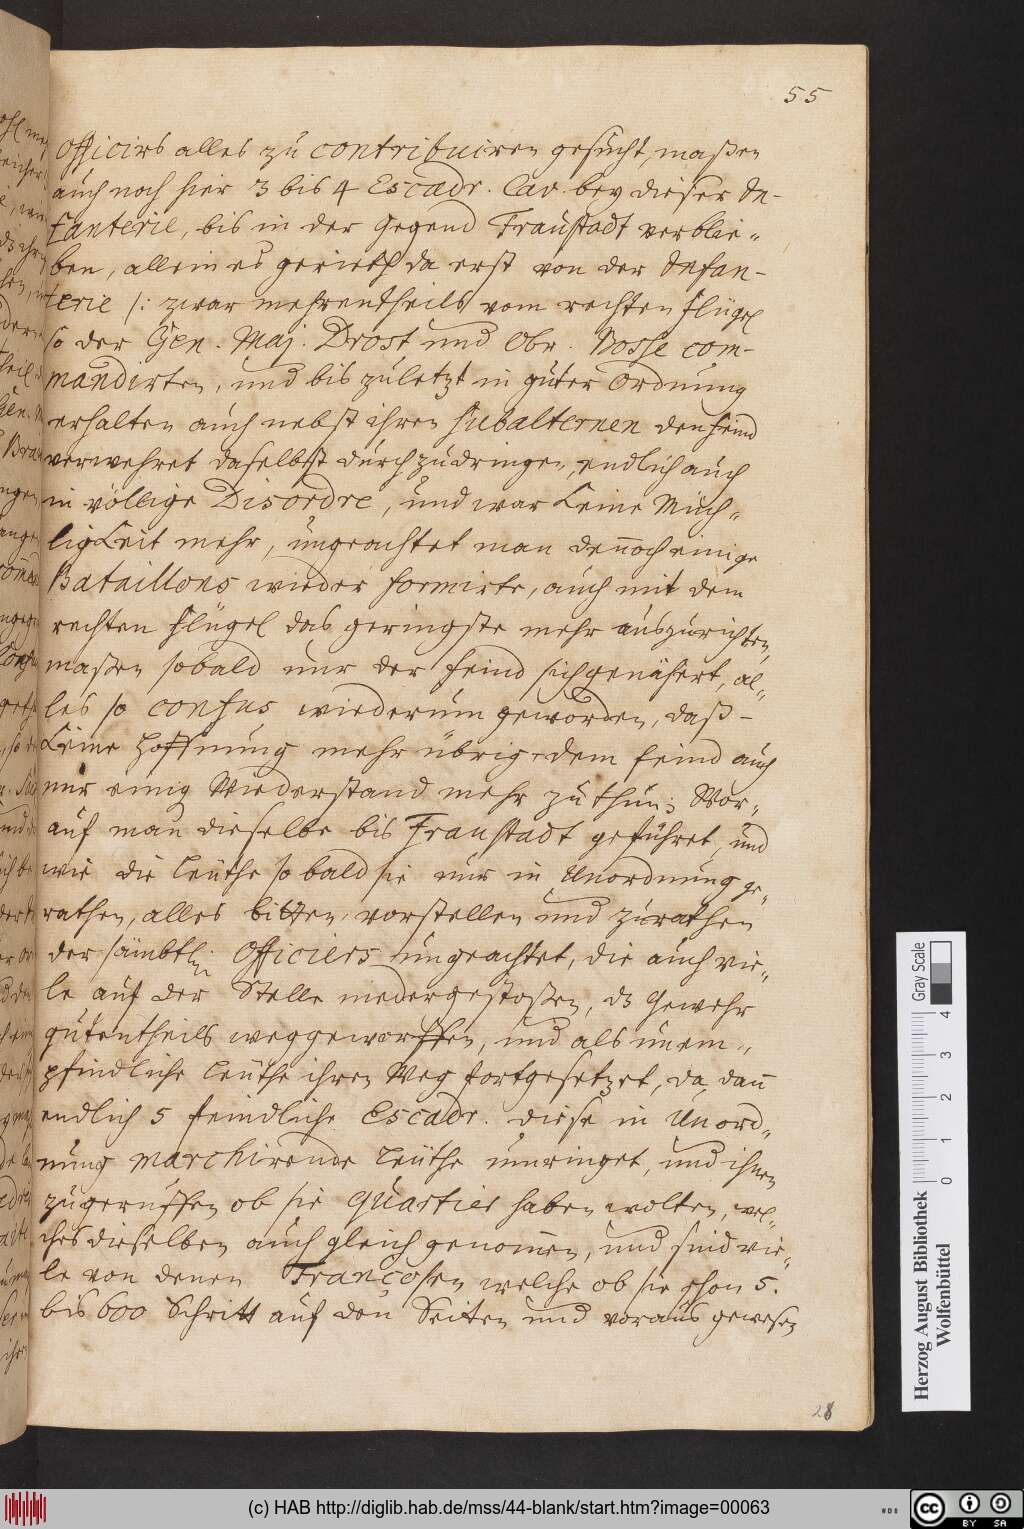 55
Officirs alles zu contribuiren gesucht, maßen
auch noch hier 3 bis 4 Escadr. Cav. bey dieser In-
fanterie, bis in der Gegend Fraustadt verblie-
ben, allein es gerieth da erst von der Infan-
terie /: zwar mehrentheils vom rechten Flügel
so der Gen. Maj. Drost und Obr. Bosse com-
mandirten, und bis zuletzt in guter Ordnung
erhalten auch nebst ihren Subalternen den feind
verwehret daselbst durchzudringen, endlich auch
in völlige Disordre, und war keine Müch-
ligkeit mehr, ungeachtet man dennoch einige
Bataillons wieder formirte, auch mit dem
rechten Flügel das geringste mehr auszurichten,
maßen sobald nur der feind sich genähert, al-
les so confus wiederum geworden, daß
keine Hoffnung mehr übrig dem feind auch
nur einig Wiederstand mehr zu thun; Wor-
auf man dieselbe bis Fraustadt geführet, und
wie die Leuthe so bald sie nur in Unordnung ge-
rathen, alles bitten, vorstellen und zurathen
der sämbtl. Officiers ungeachtet, die auch vie-
le auf der Stelle niedergestoßen, dz Gewehr
gutentheils weggeworffen, und als unem-
pfindliche Leuthe ihren Weg fortgesetzet, da dann
endlich 5 feindliche Escadr. diese in Unord-
nung marchirende Leuthe umringet, und ihnen
zugeruffen ob sie Quartier haben wolten, wel-
ches dieselben auch gleich genommen, und sind vie-
le von denen Françosen welche ob sie schon 5.
bis 600 Schritt auf den Seiten und voraus gewesen
28
Herzog August Bibliothek
Wolfenbüttel
Gray Scale
0 1 2 3 4
(c) HAB http://diglib.hab.de/mss/44-blank/start.htm?image=00063
WDB
cc BY SA